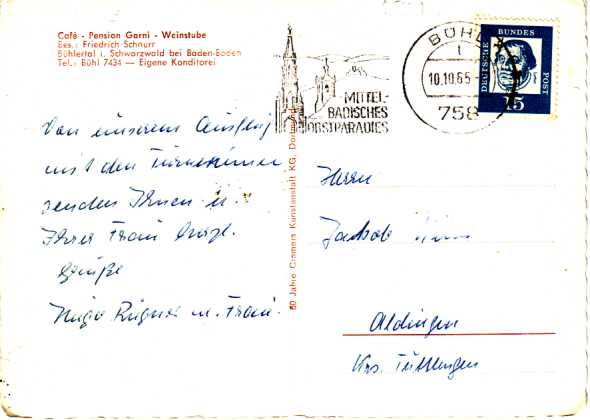 Café - Pension Garni - Weinstube
Bes.: Friedrich Schnurr
Bühlertal i. Schwarzwald bei Baden-Baden
Tel.: Bühl 7434 — Eigene Konditorei
Von unserem Ausflug
mit den Turnerinnen
senden Ihnen u.
Ihrer Frau herzl.
Grüße
Hugo u. Frau.
50 Jahre Cramers Kunstanstalt KG, Dortmund
MITTEL-
BADISCHES
OBSTPARADIES
BÜHL
10.10.65
758
DEUTSCHE BUNDES POST
15
Herrn
Jakob
Aldingen
Krs. Tuttlingen